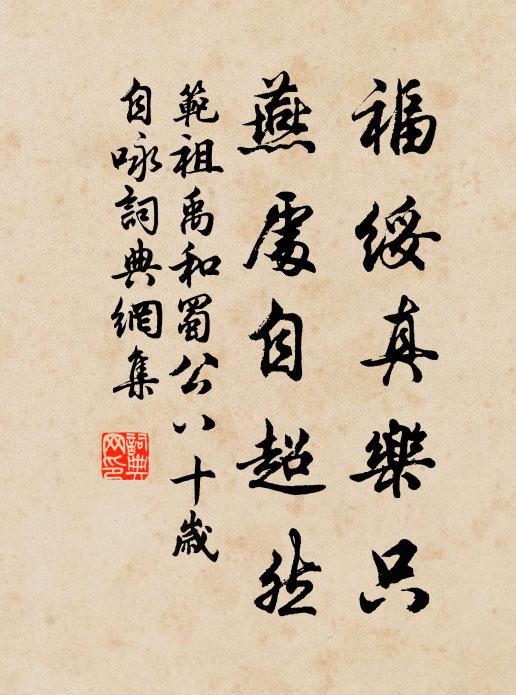 福綏真樂只
燕處自超然
範祖禹和蜀公八十歲
自咏詞典網集
詞典
网印